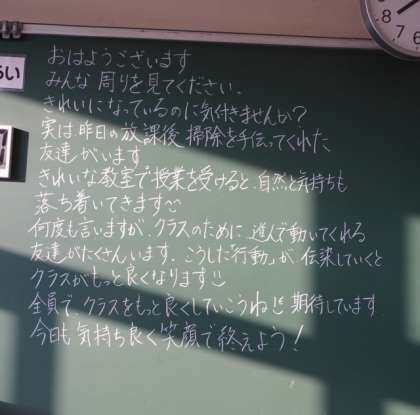 おはようございます
みんな 周りを見てください。
きれいになっているのに気付きませんか?
実は昨日の放課後、掃除を手伝ってくれた
友達がいます
きれいな教室で授業を受けると、自然と気持ちも
落ち着いてきます
何度も言いますが、クラスのために 進んで動いてくれる
友達がたくさんいます。こうした「行動」が、伝染していくと
クラスがもっと良くなります
全員で、クラスをもっと良くしていこうね!! 期待しています
今日も 気持ち良く 笑顔で終えよう!